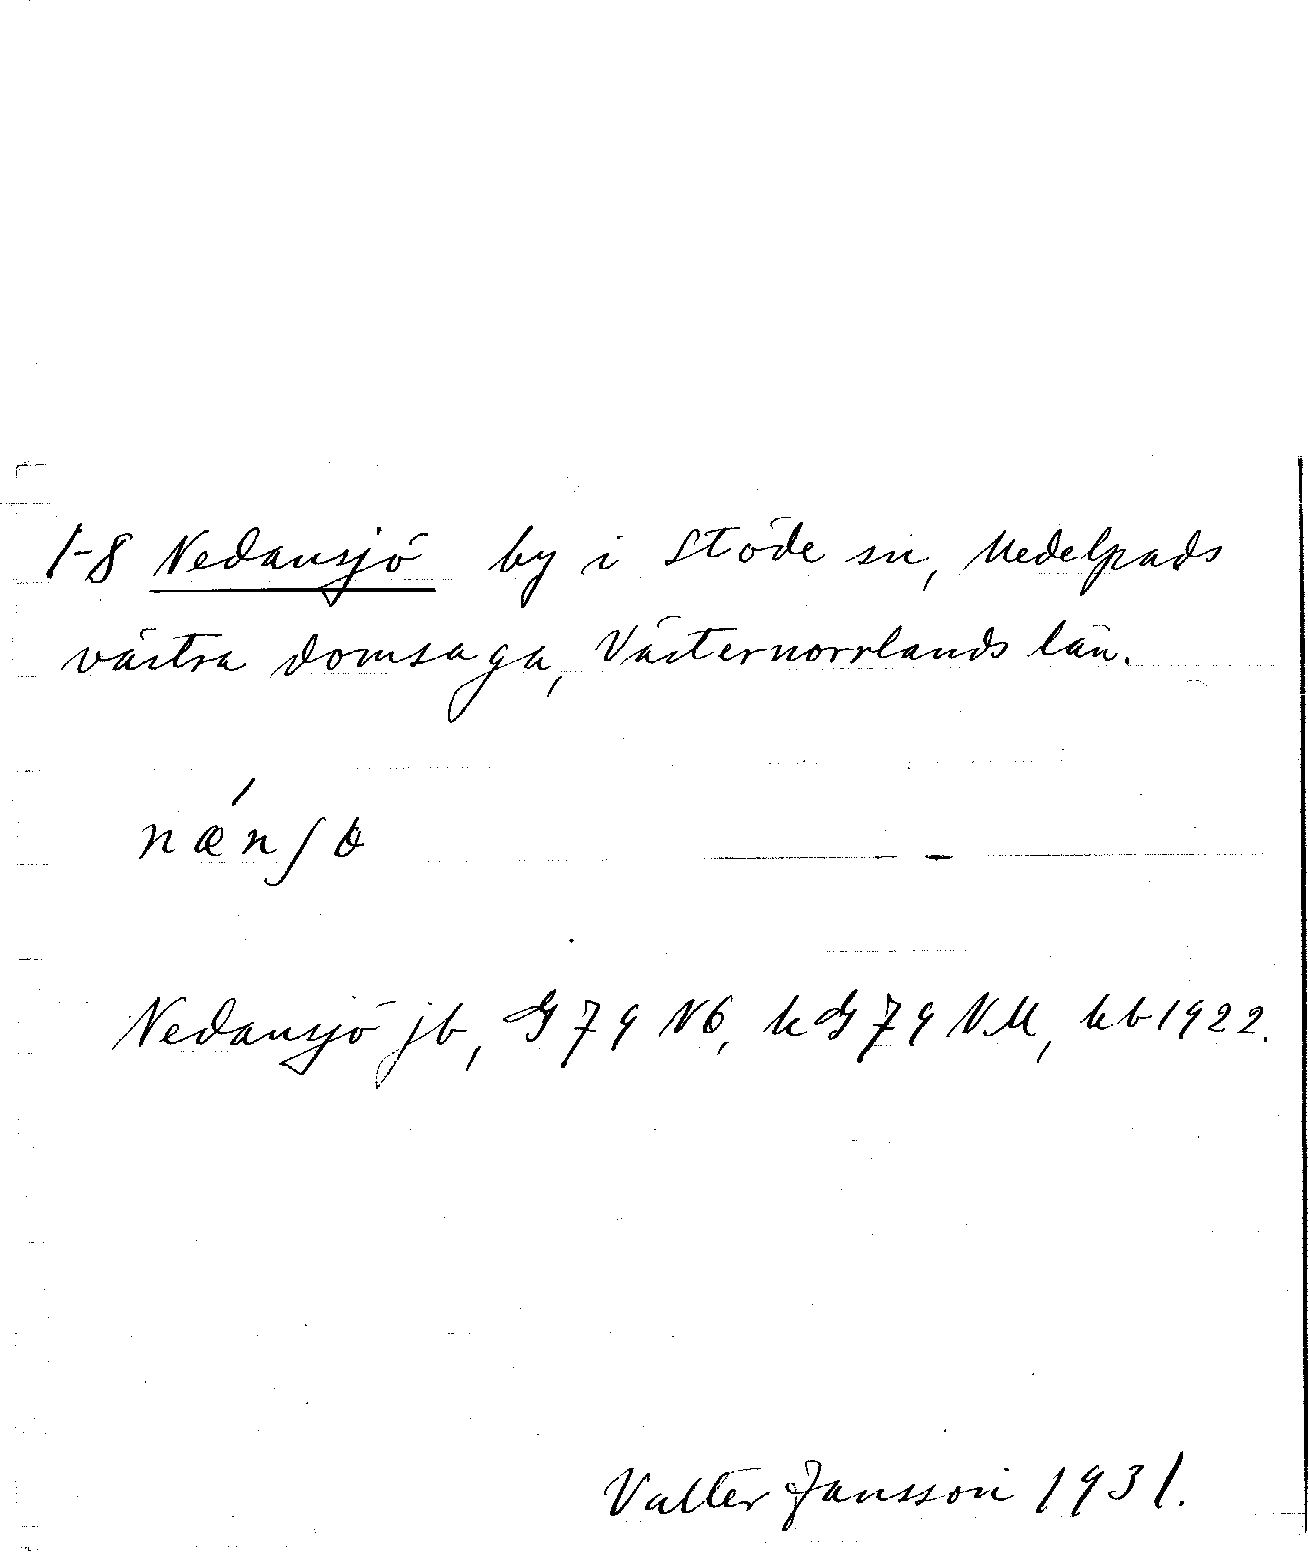 1-8 Nedansjö by i Stöde sn, Medelpads
västra domsaga, Västernorrlands län.
Nedansjö jb, G 79 NÖ, kG 79 NM, kb 1922.
Valter Jansson 1931.